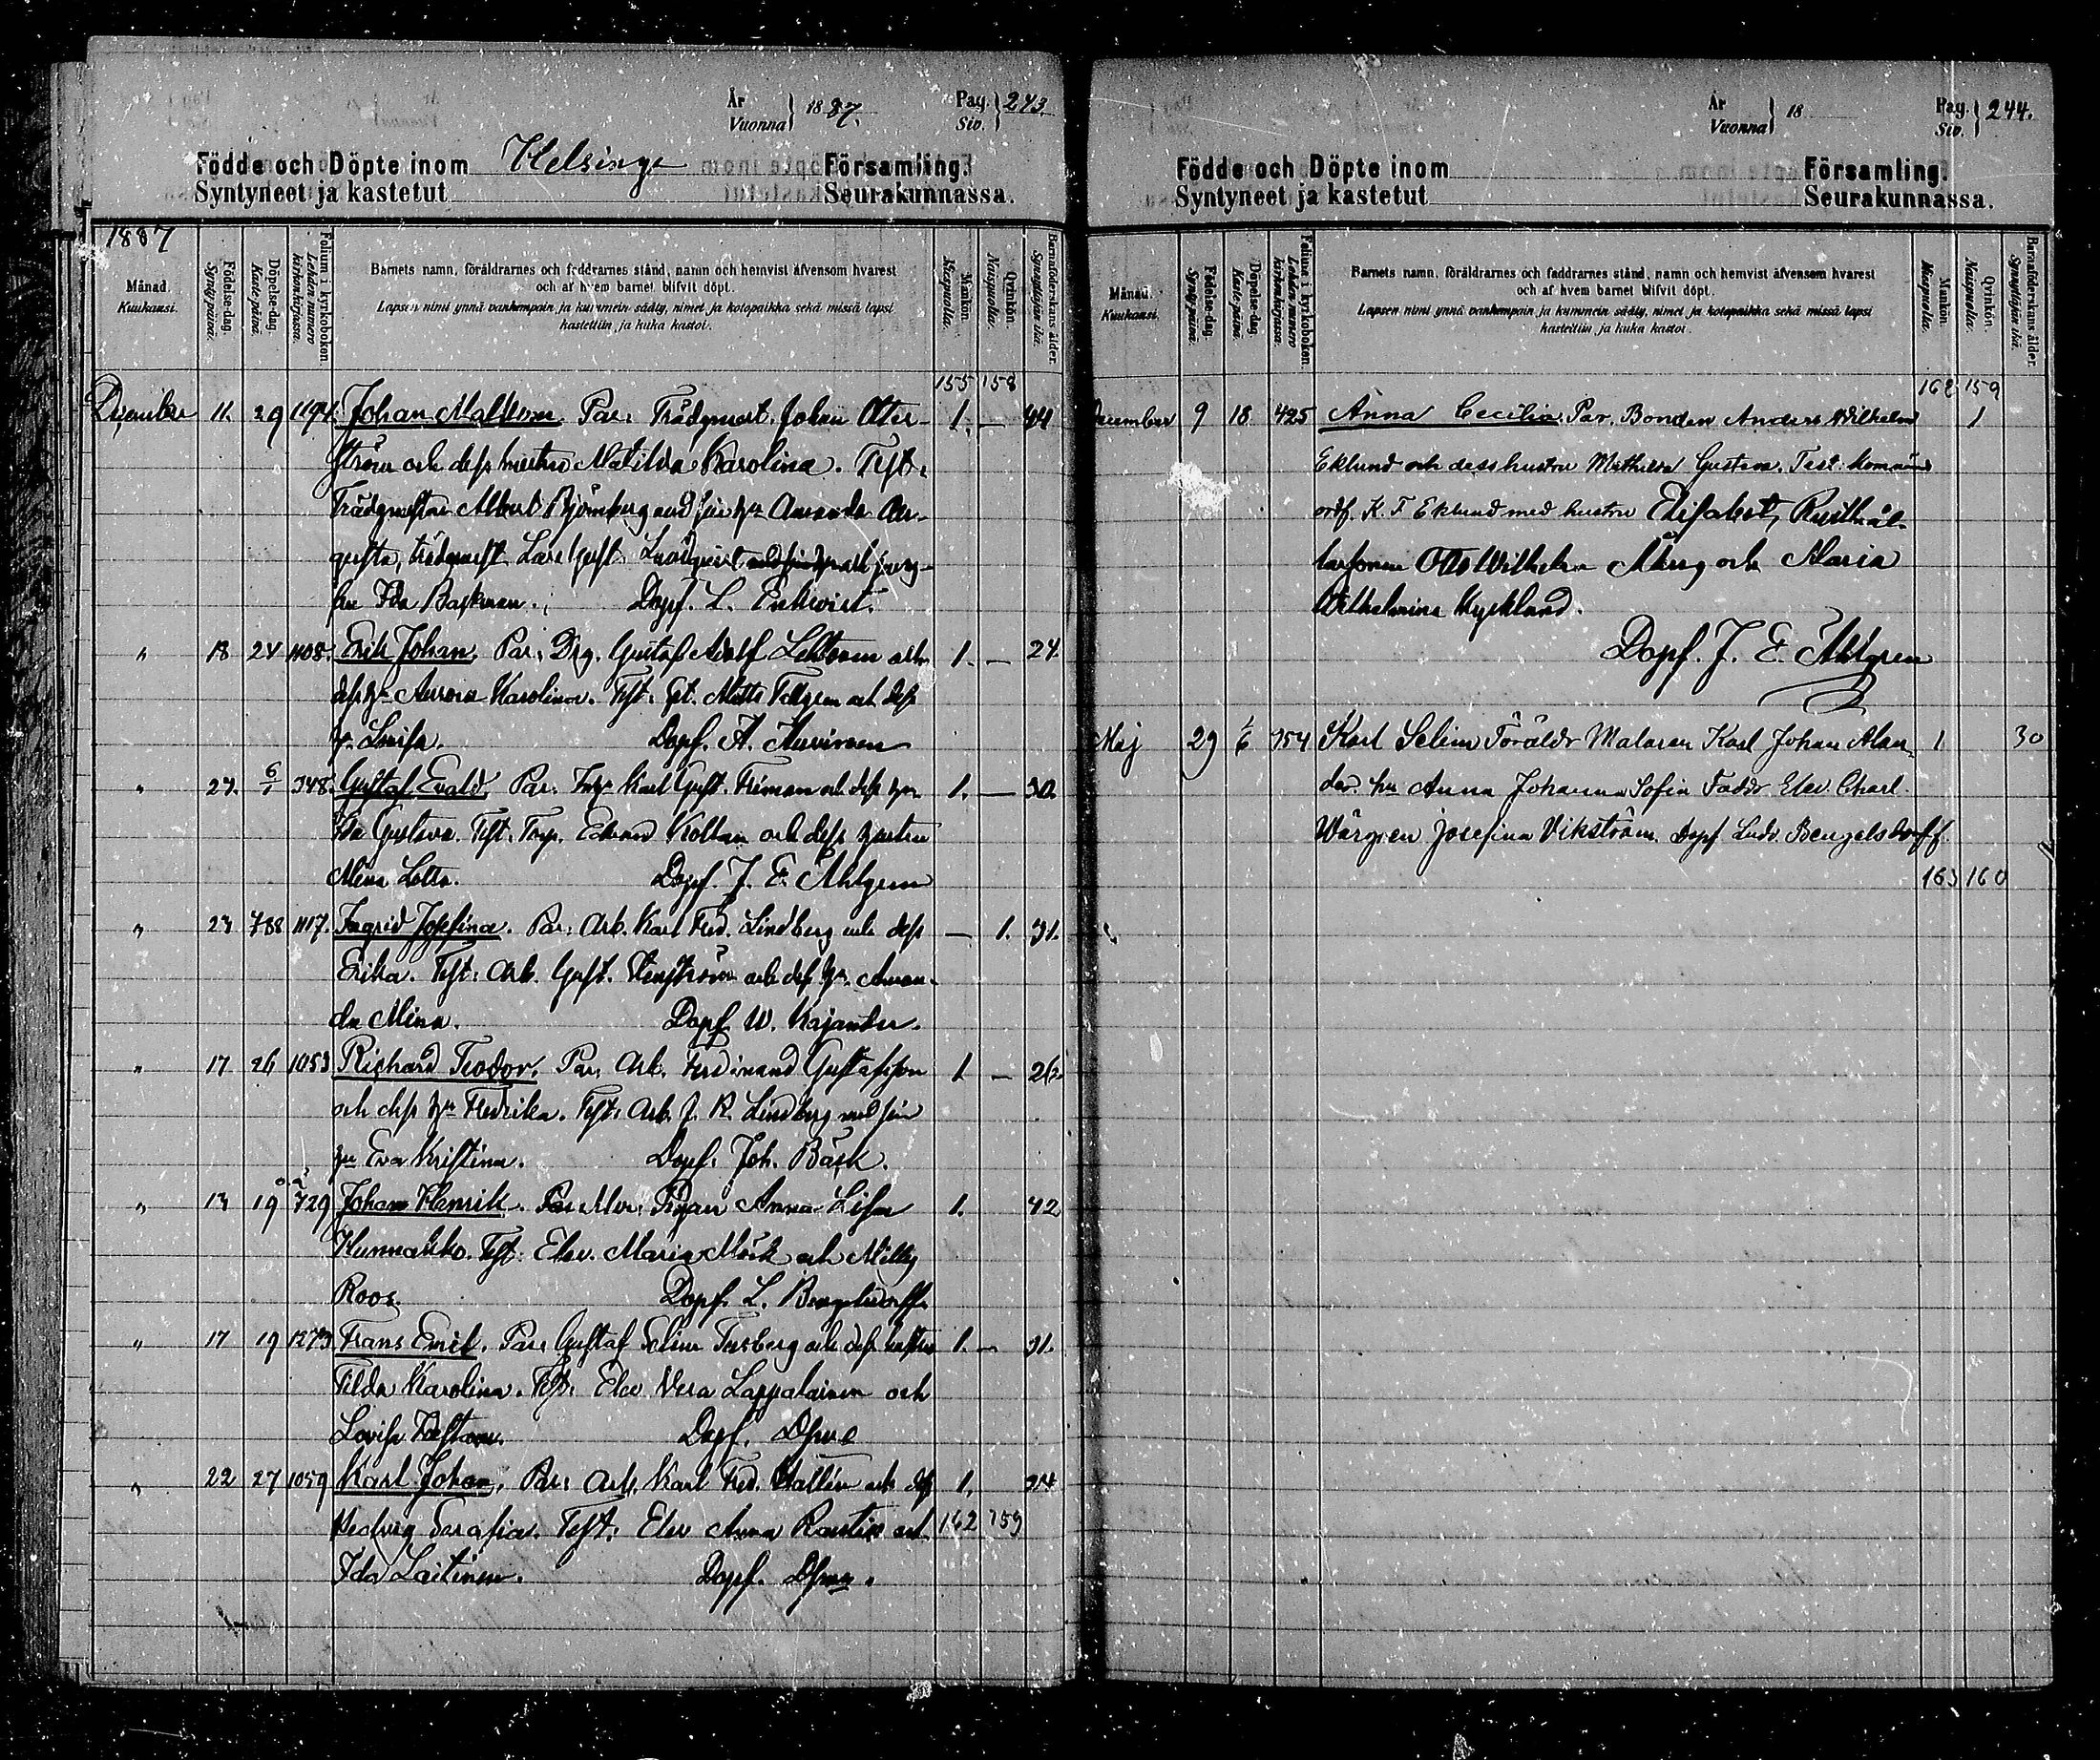 År
Vuonna } 1887.
Pag.
Siv. } 243.
Födde och Döpte inom Helsinge Församling.
Syntyneet ja kastetut Seurakunnassa.
1887
Månad.
Kuukausi.
Födelse-dag.
Synty-päivä.
Döpelse-dag.
Kaste-päivä.
Folium i kyrkoboken.
Lehden numero kirkonkirjassa.
Barnets namn, föräldrarnes och faddrarnes stånd, namn och hemvist äfvensom hvarest
och af hvem barnet blifvit döpt.
Lapsen nimi ynnä vanhempain ja kummein sääty, nimet ja kotopaikka sekä missä lapsi
kastettiin, ja kuka kastoi.
Mankön.
Miespuolia.
Qvinkön.
Naispuolia.
Barnaföderskans ålder.
Synnyttäjän ikä.
155 158
December 11. 29 1194. Johan Par: Trädgmast. Johan Otter- 1. — 44
ström och dess hustru Matilda Karolina. Test:
Trädgmastar Albert Björnberg med sin hu Amanda Au-
gusta, trädgmast. Lars Gust. och jung-
fru Ida Backman. Döpf. L. Enkvist.
" 18 24 1108. Erik Johan. Par: Drg. Gustaf Adolf och 1. — 24.
dess hu Aurora Karolina. Test: Matts Tellgren och dess
hu Lovisa. Döpf. A. Auvinen
" 27. 6/1 348. Gustaf Evald. Par: Karl Gust. Friman och dess hu 1. — 30.
Ida Gustava. Test: Torp. Edvard och dess hustru
Mina Lotta. Döpf. J. E. Ahlgren
" 23 788 1117. Ingrid Josefina. Par: Arb. Karl Fred. Lindberg och dess — 1. 31.
Erika. Test: Arb. Gust. Stenström och dess hu Aman-
da Mina. Döpf. W. Kajander.
" 17 26 1053 Richard Teodor. Par: Arb. Ferdinand Gustafsson 1 — 26.
och dess hu Fredrika. Test: Arb. J. R. Lindberg med sin
hu Eva Kristina. Döpf. Joh. Bäck.
" 13 19 729 Johan Henrik. Par: Mor. Pigan Anna Lisa 1. 42
Hunnakko. Test: Elev. Maria Mörk och Milly
Roos. Döpf. L. Bengelsdorff.
" 17 19 1273 Frans Emil. Par: Gustaf Selim Forsberg och dess hustru 1. — 31.
Tilda Karolina. Test: Elev Vera Lappalainen och
Lovisa Döpf. Dsme
" 22 27 1059 Karl Johan. Par: Arb. Karl Fred. och dess 1.
Hedvig Serafia. Test: Elev Anna och 162 159
Ida Laitinen. Döpf. Dsme.
År
Vuonna } 18
Pag.
Siv. } 244.
Födde och Döpte inom Församling.
Syntyneet ja kastetut Seurakunnassa.
Månad.
Kuukausi.
Födelse-dag.
Synty-päivä.
Döpelse-dag.
Kaste-päivä.
Folium i kyrkoboken.
Lehden numero kirkonkirjassa.
Barnets namn, föräldrarnes och faddrarnes stånd, namn och hemvist äfvensom hvarest
och af hvem barnet blifvit döpt.
Lapsen nimi ynnä vanhempain ja kummein sääty, nimet ja kotopaikka sekä missä lapsi
kastettiin, ja kuka kastoi.
Mankön.
Miespuolia.
Qvinkön.
Naispuolia.
Barnaföderskans ålder.
Synnyttäjän ikä.
162 159
December 9 18 425 Anna Cecilia. Par. Bonden Anders Wilhelm 1
Eklund och dess hustru Mathilda Gustava. Test: Komuns
ordf. K. F Eklund med hustru Elisabet, Rusthål-
larsonen Otto Wilhelm Åberg och Maria
Wilhelmina Nycklund.
Döpf. J. E. Ahlgren
Maj 29 1/6 754 Karl Selim Föräldr Målaren Karl Johan Alan- 1 30
der hu Anna Johanna Sofia Faddr. Elev. Charl.
Wårgren Josefina Vikström. Döpf. Ludv. Bengelsdorff.
163 160